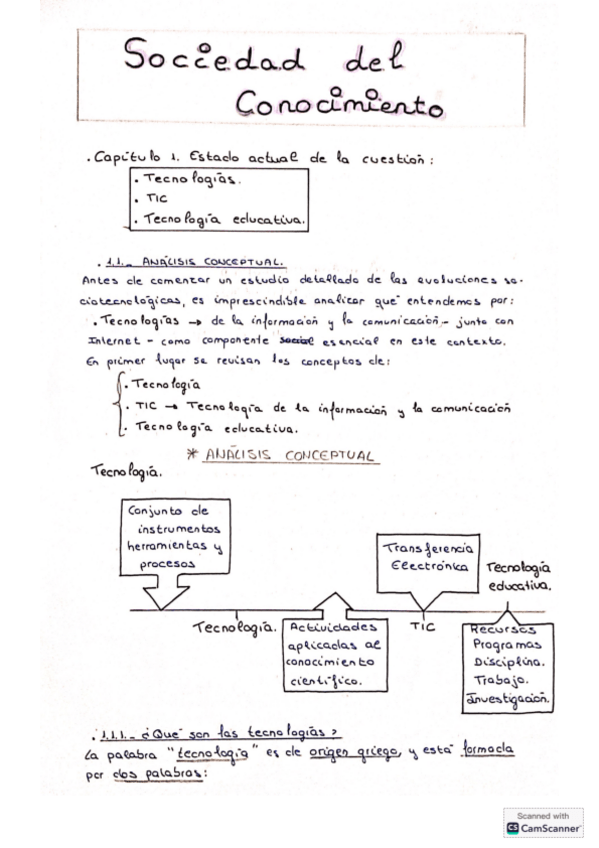 Sociedad del
Conocimiento
. Capítulo 1. Estado actual de la cuestión:
. Tecnologías.
. TIC
. Tecnología educativa.
. 1.1.- ANÁLISIS CONCEPTUAL.
Antes de comenzar un estudio detallado de las evoluciones so-
ciotecnológicas, es imprescindible analizar qué entendemos por:
. Tecnologías → de la información y la comunicación - junto con
Internet - como componente social esencial en este contexto.
En primer lugar se revisan los conceptos de:
. Tecnología
. TIC → Tecnología de la información y la comunicación
. Tecnología educativa.
* ANÁLISIS CONCEPTUAL
Tecnología.
Conjunto de
instrumentos
herramientas y
procesos
Transferencia
Electrónica
Tecnología
educativa.
Tecnología.
Actividades
aplicadas al
conocimiento
científico.
TIC
Recursos
Programas
Disciplina.
Trabajo.
Investigación.
. 1.1.1.- ¿Qué son las tecnologías?
La palabra "tecnología" es de origen griego, y está formada
por dos palabras:
Scanned with
CS CamScanner